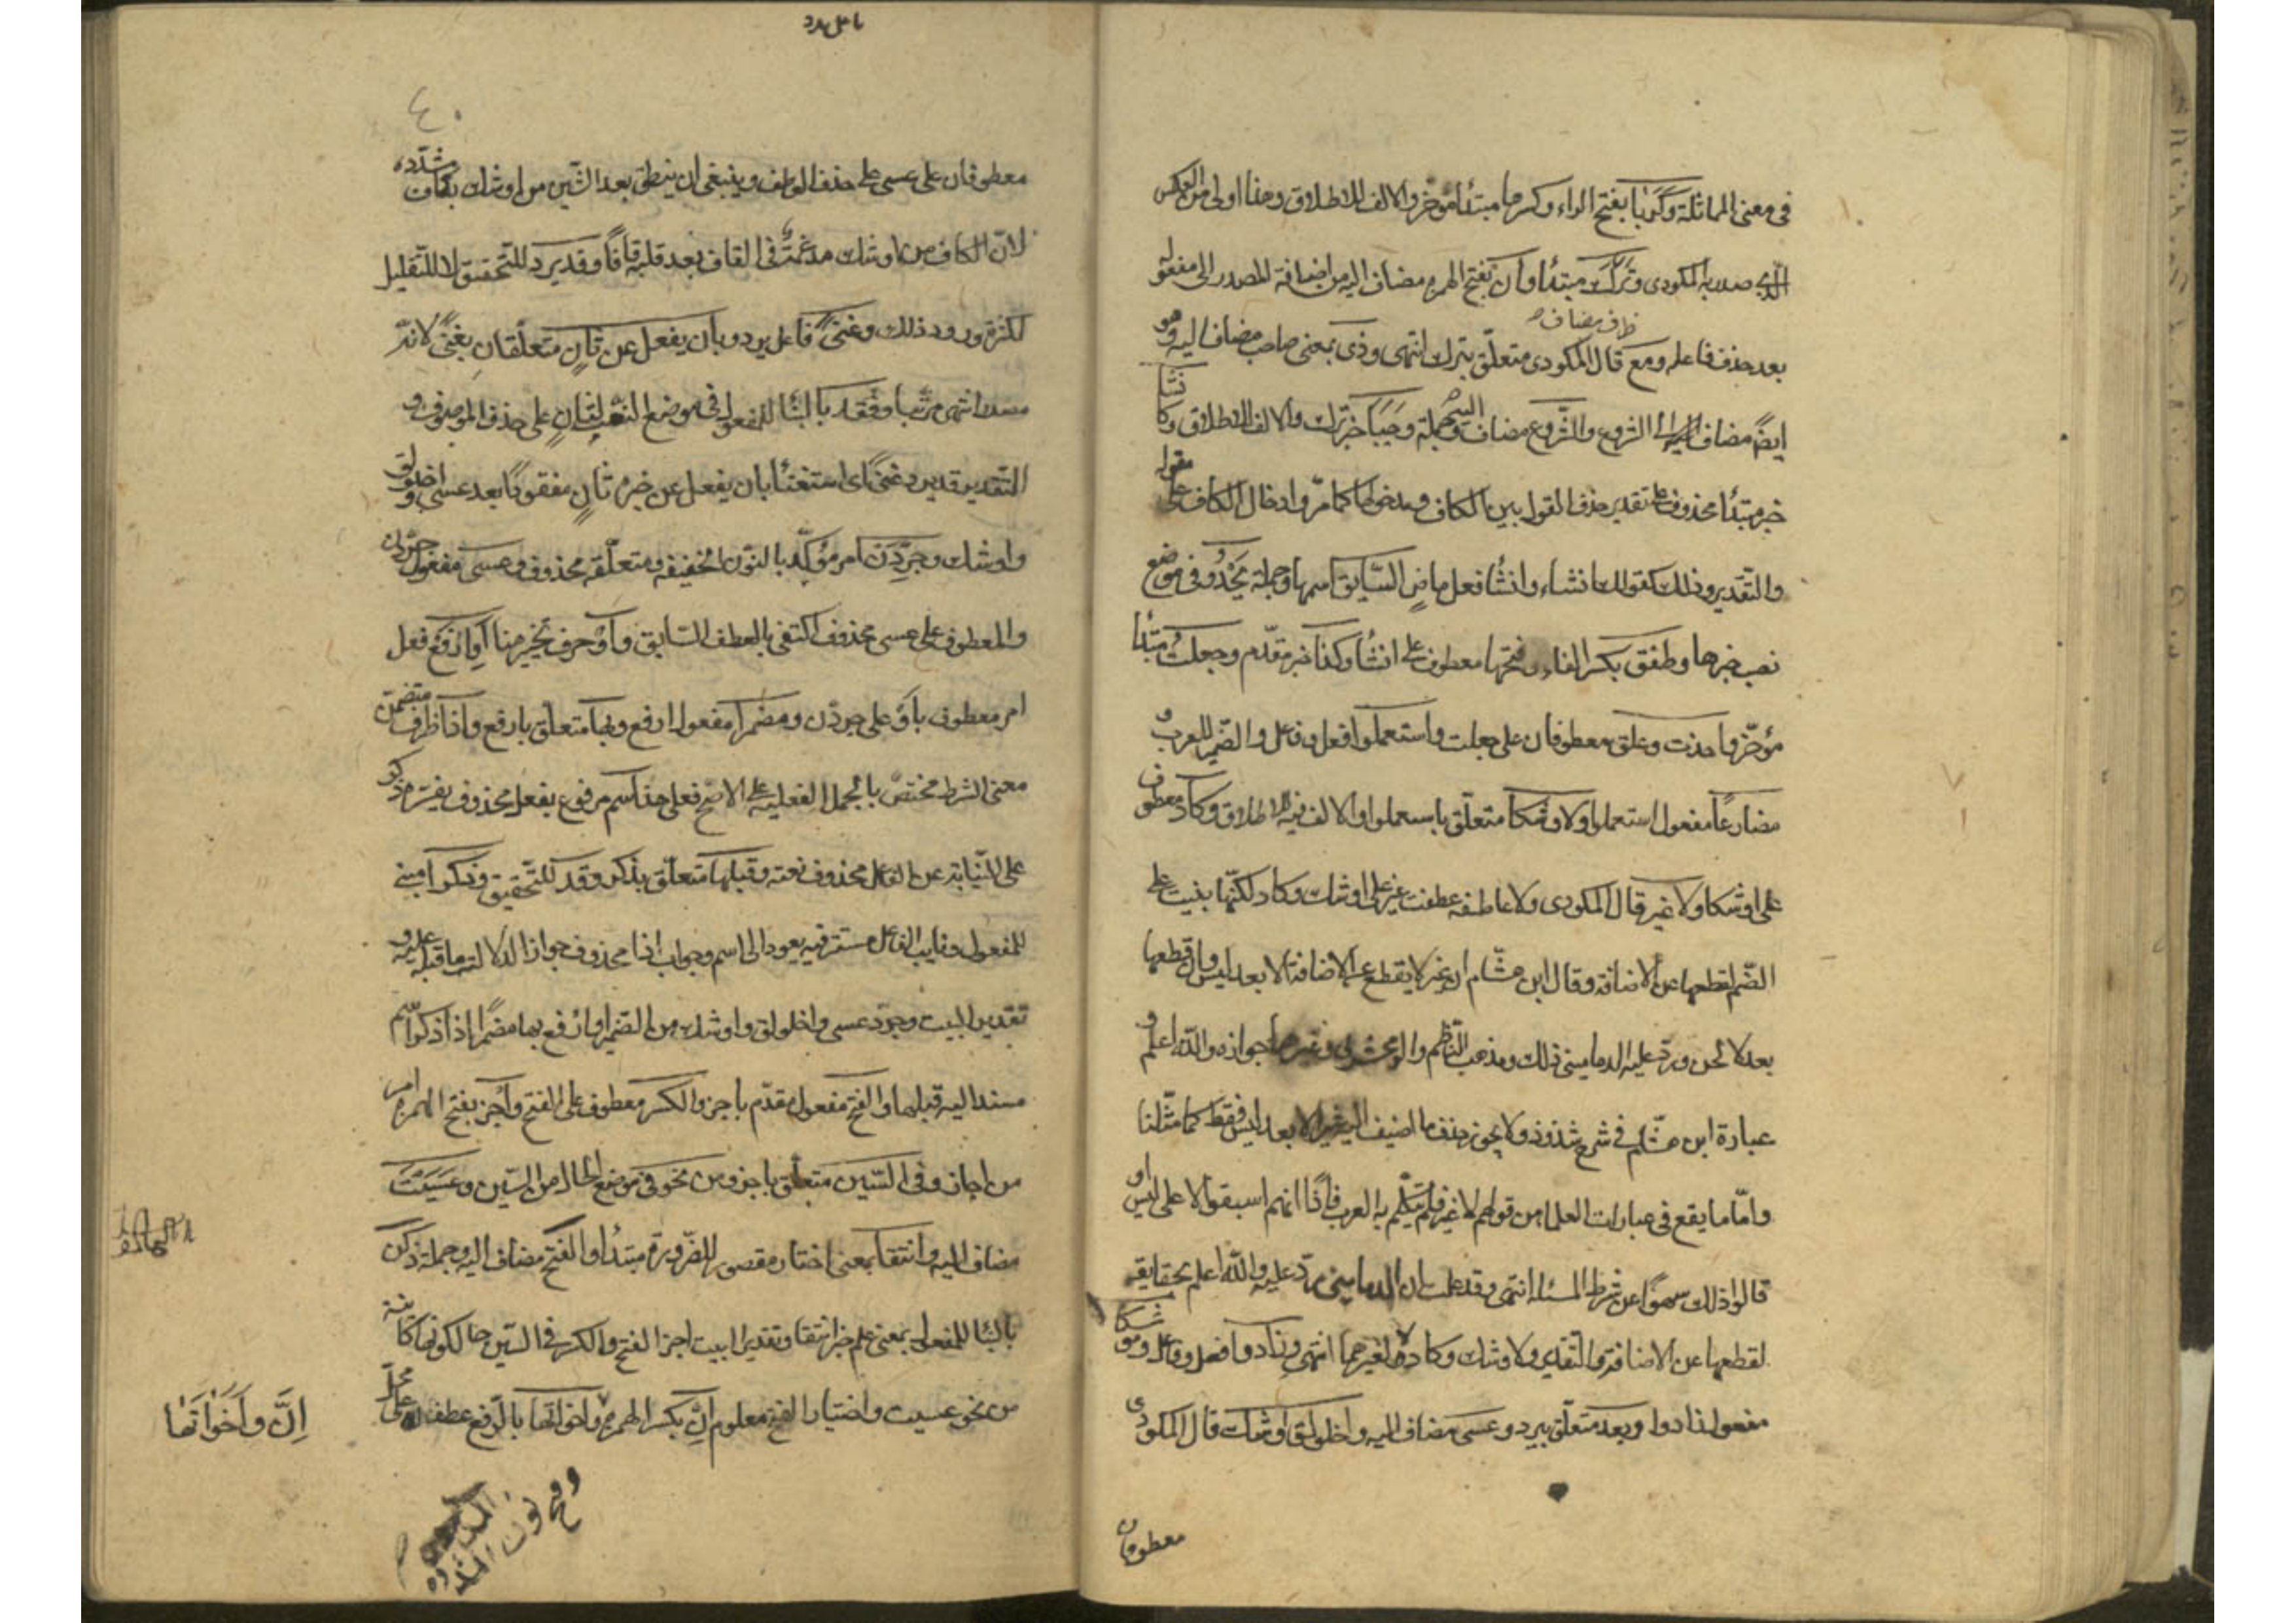 في معنى المماثلة وكَرَبا بفتح الراء وكسرها مبتدأ مؤخر والالف للاطلاق وهذا اولى من العكس
الذي صدر به المكودى وتركُ مبتدأ وأن بفتح الهمزه مضاف اليه من اضافة المصدر الى مفعوله
بعد حذف فاعله ومع قال المكودى متعلّق بترك انتهى وذى بمعنى صاحب مضاف اليه وهو
ظرف مضاف
ايضًا مضاف الى الشروع والشّروع مضاف اليه وجملة وجَبَا خبر ترك والالف للاطلاق وكأنشأ
خبر مبتدأ محذوف على تقدير حذف القول بين الكاف ومدخولها كما مرّ وادخال الكاف على مقوله
والتّقدير وذلك كقولك انشاء وانشأ فعل ماض السّايق اسمها وجملة يَحْدُو في موضع
نصب خبرها وطفق بكسر الفاء وفتحها معطوف على انشأ وكذا خبر مقدّم وجعلتُ مبتدأ
مؤخّر واخذت وعلق معطوفان على جعلت واستعملوا فعل وفاعل والضّمير للعرب و
مضارعًا مفعول استعملوا ولاوشكا متعلّق باستعملوا والالف فيه للاطلاق وكادَ معطوف
على اوشكا ولا غير قال المكودى ولا عاطفه عطفت غير على اوشك وكاد لكنّها بنيت على
الضّم لقطعها عن الاضافة وقال ابن هشام ان غير لا يقطع عن الاضافة الا بعد ليس وان قطعها
بعد لا لحن وردّ عليه الدمامينى ذلك ومذهب النّاظم والزمخشرى وغيرهما جوازه والله اعلم و
عبارة ابن هشام في شرح شذوذ ولا يجوز حذف ما اضيف اليه غير الا بعد ليس فقط كما مثّلنا
وامّا ما يقع في عبارات العلما من قولهم لا غير فلم يتكلّم به العرب فأمّا انهم اسبقوا لا على ليس او
قالوا ذلك سهوًا عن شرط المسئلة انتهى وقد علمت ان الدمامينى ردّ عليه والله اعلم بحقايقه
لقطعها عن الاضافة والتّقدير ولاوشك وكاد لا لغيرهما انتهى وزادوا فعل وفاعل وموشكا
مفعول زادوا وبعد متعلّق بيرد وعسى مضاف اليه واخلولق اوشك قال المكودى
معطوفان
معطوفان على عسى على حذف العاطف وينبغى ان ينطق بعد الشّين من اوشك بقاف مشدّده
لانّ الكاف من اوشك مدغمة في القاف بعد قلبه قافًا وقد يرد للتّحقيق لا للتّقليل
لكثرة ورود ذلك وغنىً فاعل يرد وبأن يفعل عن ثانٍ متعلّقان بغنىً لانّه
مصدر انتهى مرتّبا وفُقِد بالبنا للمفعول في موضع النعت لثانٍ على حذف الموصوف و
التّقدير قد يرد غنىً اى استغنأ بان يفعل عن خبر ثانٍ مفقودًا بعد عسى واخلولق
واوشك وجرّدَن امر مؤكّد بالنون الخفيفه ومتعلّقه محذوف وعسى مفعول جرّدن
والمعطوف على عسى محذوف اكتفى بالعطف السّابق وأوْ حرف تخيير هنا أو ارفع فعل
امر معطوف بأو على جردن ومضمرا مفعول ارفع وبها متعلّق بارفع واذا ظرف متضمن
معنى الشرط مختص بالجمل الفعليه على الاصح فعلى هذا اسم مرفوع بفعل محذوف يفسّره ذكر
على النّيابة عن الفاعل محذوف نعته وقبلها متعلّق بذكر وقد للتّحقيق وذكرا مبنى
للمفعول ونايب الفاعل مستتر فيه يعود الى اسم وجواب اذا محذوف جوازا لدلالة ما قبله عليه و
تقدير البيت وجرّد عسى واخلولق واوشك من الضّمير او ارفع بها مضمرًا اذا ذكر اسم
مسندا اليه قبلها والفتح مفعول مقدّم باجز والكسر معطوف على الفتح وأجز بفتح الهمزه امر
من اجاز وفى السّين متعلّق باجز ومن نحو في موضع الحال من السّين وعَسَيْتُ
مضاف اليه وانتقا بمعنى اختار مقصور للضّرورة مبتدأ والفتح مضاف اليه وجملة زكن
بالبنا للمفعول بمعنى علم خبر انتقا وتقدير البيت اجز الفتح والكسر فى السّين حالكونها كاينة
من نحو عسيت واختيار الفتح معلوم إنّ بكسر الهمزه واخواتها بالرّفع عطف على محلّ
إنَّ وأخَوَاتُها
وفتح نون المشدده